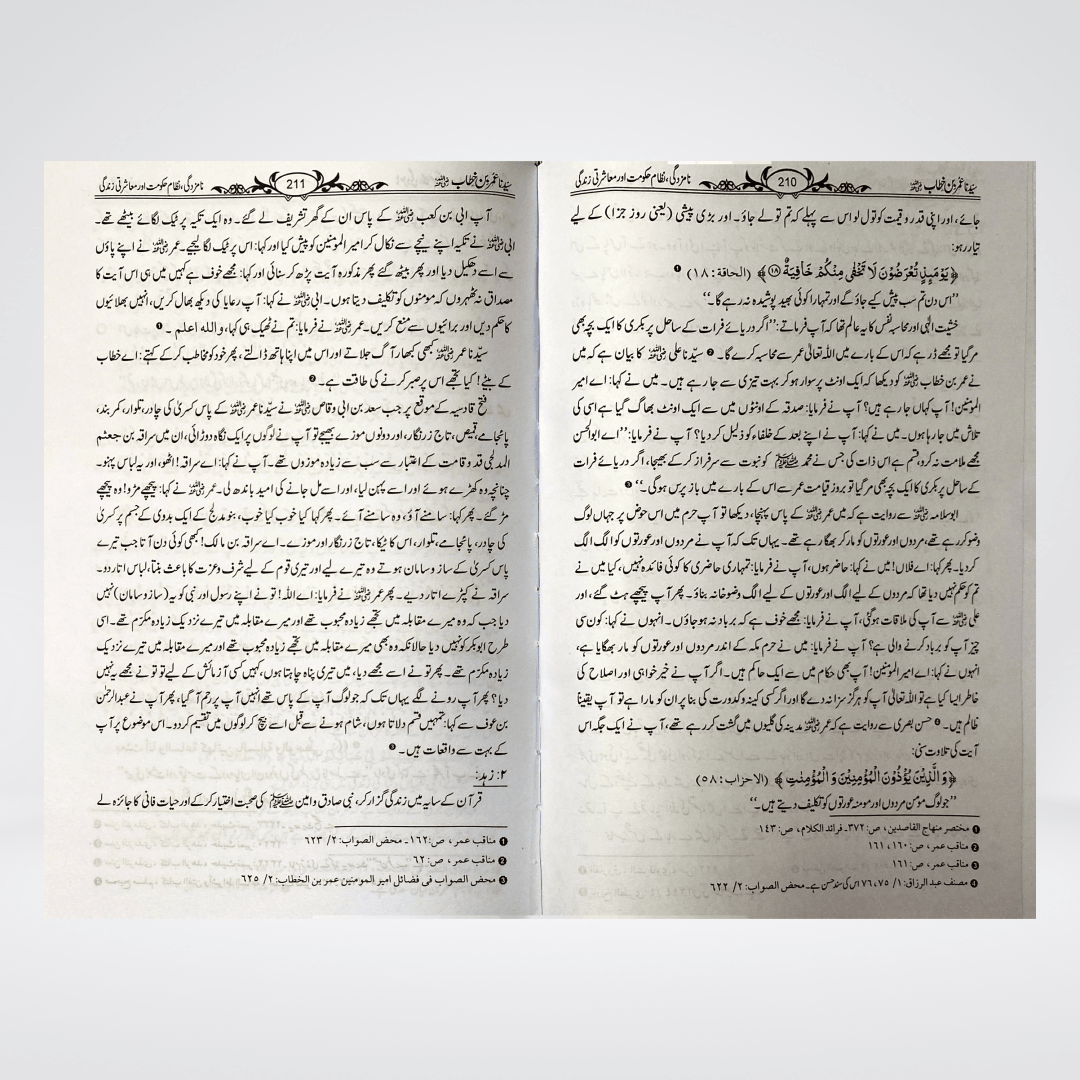 سیّدنا عمر بن خطاب رضی اللہ عنہ 210 نامزدگی، نظام حکومت اور معاشرتی زندگی
جائے، اور اپنی قدر و قیمت کو تول لو اس سے پہلے کہ تم تولے جاؤ۔ اور بڑی پیشی (یعنی روز جزا) کے لیے
تیار رہو:
﴿یَوْمَىِٕذٍ تُعْرَضُوْنَ لَا تَخْفٰى مِنْكُمْ خَافِیَةٌ ۝۱۸﴾ (الحاقة:۱۸) ❶
’’اس دن تم سب پیش کیے جاؤ گے اور تمہارا کوئی بھید پوشیدہ نہ رہے گا۔‘‘
خشیت الٰہی اور محاسبہ نفس کا یہ عالم تھا کہ آپ فرماتے: ’’اگر دریائے فرات کے ساحل پر بکری کا ایک بچہ بھی
مر گیا تو مجھے ڈر ہے کہ اس کے بارے میں اللہ تعالیٰ عمر سے محاسبہ کرے گا۔ ❷ سیّدنا علی رضی اللہ عنہ کا بیان ہے کہ میں
نے عمر بن خطاب رضی اللہ عنہ کو دیکھا کہ ایک اونٹ پر سوار ہو کر بہت تیزی سے جا رہے ہیں۔ میں نے کہا: اے امیر
المومنین! آپ کہاں جا رہے ہیں؟ آپ نے فرمایا: صدقہ کے اونٹوں میں سے ایک اونٹ بھاگ گیا ہے اسی کی
تلاش میں جا رہا ہوں۔ میں نے کہا: آپ نے اپنے بعد کے خلفاء کو ذلیل کر دیا؟ آپ نے فرمایا: ’’اے ابوالحسن
مجھے ملامت نہ کرو، قسم ہے اس ذات کی جس نے محمد ﷺ کو نبوت سے سرفراز کر کے بھیجا، اگر دریائے فرات
کے ساحل پر بکری کا ایک بچہ بھی مر گیا تو بروز قیامت عمر سے اس کے بارے میں باز پرس ہو گی۔‘‘ ❸
ابوسلامہ رضی اللہ عنہ سے روایت ہے کہ میں عمر رضی اللہ عنہ کے پاس پہنچا، دیکھا تو آپ حرم میں اس حوض پر جہاں لوگ
وضو کر رہے تھے، مردوں اور عورتوں کو مار کر بھگا رہے تھے۔ یہاں تک کہ آپ نے مردوں اور عورتوں کو الگ الگ
کر دیا۔ پھر کہا: اے فلاں! میں نے کہا: حاضر ہوں، آپ نے فرمایا: تمہاری حاضری کا کوئی فائدہ نہیں، کیا میں نے
تم کو حکم نہیں دیا تھا کہ مردوں کے لیے الگ اور عورتوں کے لیے الگ وضو خانہ بناؤ۔ پھر آپ پیچھے ہٹ گئے، اور
علی رضی اللہ عنہ سے آپ کی ملاقات ہو گئی، آپ نے فرمایا: مجھے خوف ہے کہ برباد نہ ہو جاؤں۔ انہوں نے کہا: کون سی
چیز آپ کو برباد کرنے والی ہے؟ آپ نے فرمایا: میں نے حرم مکہ کے اندر مردوں اور عورتوں کو مار بھگایا ہے،
انہوں نے کہا: اے امیر المومنین! آپ بھی حکام میں سے ایک حاکم ہیں۔ اگر آپ نے خیر خواہی اور اصلاح کی
خاطر ایسا کیا ہے تو اللہ تعالیٰ آپ کو ہرگز سزا نہ دے گا اور اگر کسی کینہ و کدورت کی بنا پر ان کو مارا ہے تو آپ یقینا
ظالم ہیں۔ ❹ حسن بصری سے روایت ہے کہ عمر رضی اللہ عنہ مدینہ کی گلیوں میں گشت کر رہے تھے، آپ نے ایک جگہ اس
آیت کی تلاوت سنی:
﴿وَ الَّذِیْنَ یُؤْذُوْنَ الْمُؤْمِنِیْنَ وَ الْمُؤْمِنٰتِ﴾ (الاحزاب:۵۸)
’’جو لوگ مومن مردوں اور مومنہ عورتوں کو تکلیف دیتے ہیں۔‘‘
❶ مختصر منہاج القاصدین، ص:۳۷۲۔ فرائد الکلام، ص:۱۴۳
❷ مناقب عمر، ص:۱۶۰، ۱۶۱
❸ مناقب عمر، ص:۱۶۱
❹ مصنف عبد الرزاق: ۱/ ۷۵، ۷۶ اس کی سند حسن ہے۔ محض الصواب: ۲/ ۶۲۲
سیّدنا عمر بن خطاب رضی اللہ عنہ 211 نامزدگی، نظام حکومت اور معاشرتی زندگی
آپ ابی بن کعب رضی اللہ عنہ کے پاس ان کے گھر تشریف لے گئے۔ وہ ایک تکیہ پر ٹیک لگائے بیٹھے تھے۔
ابی رضی اللہ عنہ نے تکیہ اپنے نیچے سے نکال کر امیر المومنین کو پیش کیا اور کہا: اس پر ٹیک لگا لیجیے۔ عمر رضی اللہ عنہ نے اپنے پاؤں
سے اسے دھکیل دیا اور پھر بیٹھ گئے پھر مذکورہ آیت پڑھ کر سنائی اور کہا: مجھے خوف ہے کہیں میں ہی اس آیت کا
مصداق نہ ٹھہروں کہ مومنوں کو تکلیف دیتا ہوں۔ ابی رضی اللہ عنہ نے کہا: آپ رعایا کی دیکھ بھال کریں، انہیں بھلائیوں
کا حکم دیں اور برائیوں سے منع کریں۔ عمر رضی اللہ عنہ نے فرمایا: تم نے ٹھیک ہی کہا، واللہ اعلم۔ ❶
سیّدنا عمر رضی اللہ عنہ کبھی کبھار آگ جلاتے اور اس میں اپنا ہاتھ ڈالتے، پھر خود کو مخاطب کر کے کہتے: اے خطاب
کے بیٹے! کیا تجھے اس پر صبر کرنے کی طاقت ہے۔ ❷
فتح قادسیہ کے موقع پر جب سعد بن ابی وقاص رضی اللہ عنہ نے سیّدنا عمر رضی اللہ عنہ کے پاس کسریٰ کی چادر، تلوار، کمر بند،
پائجامے، قمیص، تاج زرنگار، اور دونوں موزے بھیجے تو آپ نے لوگوں پر ایک نگاہ دوڑائی، ان میں سراقہ بن جعشم
المدلجی قد و قامت کے اعتبار سے سب سے زیادہ موزوں تھے۔ آپ نے کہا: اے سراقہ! اٹھو، اور یہ لباس پہنو۔
چنانچہ وہ کھڑے ہوئے اور اسے پہن لیا، اور اسے مل جانے کی امید باندھ لی۔ عمر رضی اللہ عنہ نے کہا: پیچھے مڑو! وہ پیچھے
مڑ گئے۔ پھر کہا: سامنے آؤ، وہ سامنے آئے۔ پھر کہا کیا خوب کیا خوب، بنو مدلج کے ایک بدوی کے جسم پر کسریٰ
کی چادر، پائجامے، تلوار، اس کا پٹکا، تاج زرنگار اور موزے۔ اے سراقہ بن مالک! بھی کوئی دن آتا جب تیرے
پاس کسریٰ کے ساز و سامان ہوتے وہ تیرے لیے اور تیری قوم کے لیے شرف و عزت کا باعث بنتا، لباس اتار دو۔
سراقہ نے کپڑے اتار دیے۔ پھر عمر رضی اللہ عنہ نے فرمایا: اے اللہ! تو نے اپنے رسول اور نبی کو یہ (ساز و سامان) نہیں
دیا جب کہ وہ میرے مقابلہ میں تجھے زیادہ محبوب تھے اور میرے مقابلہ میں تیرے نزدیک زیادہ مکرم تھے۔ اسی
طرح ابوبکر کو نہیں دیا حالانکہ وہ بھی میرے مقابلہ میں تجھے زیادہ محبوب تھے اور میرے مقابلہ میں تیرے نزدیک
زیادہ مکرم تھے۔ پھر تو نے اسے مجھے دیا، میں تیری پناہ چاہتا ہوں، کہیں کسی آزمائش کے لیے تو تو نے مجھے یہ نہیں
دیا؟ پھر آپ رونے لگے یہاں تک کہ جو لوگ آپ کے پاس تھے انہیں آپ پر رحم آ گیا، پھر آپ نے عبدالرحمٰن
بن عوف سے کہا: تمہیں قسم دلاتا ہوں، شام ہونے سے قبل اسے بیچ کر لوگوں میں تقسیم کر دو۔ اس موضوع پر آپ
کے بہت سے واقعات ہیں۔ ❸
۲: زہد:
قرآن کے سایہ میں زندگی گزار کر، نبی صادق و امین ﷺ کی صحبت اختیار کر کے اور حیات فانی کا جائزہ لے
❶ مناقب عمر، ص:۱۶۲۔ محض الصواب: ۲/ ۶۲۳
❷ مناقب عمر، ص:۶۲
❸ محض الصواب فی فضائل امیر المومنین عمر بن الخطاب: ۲/ ۶۲۵